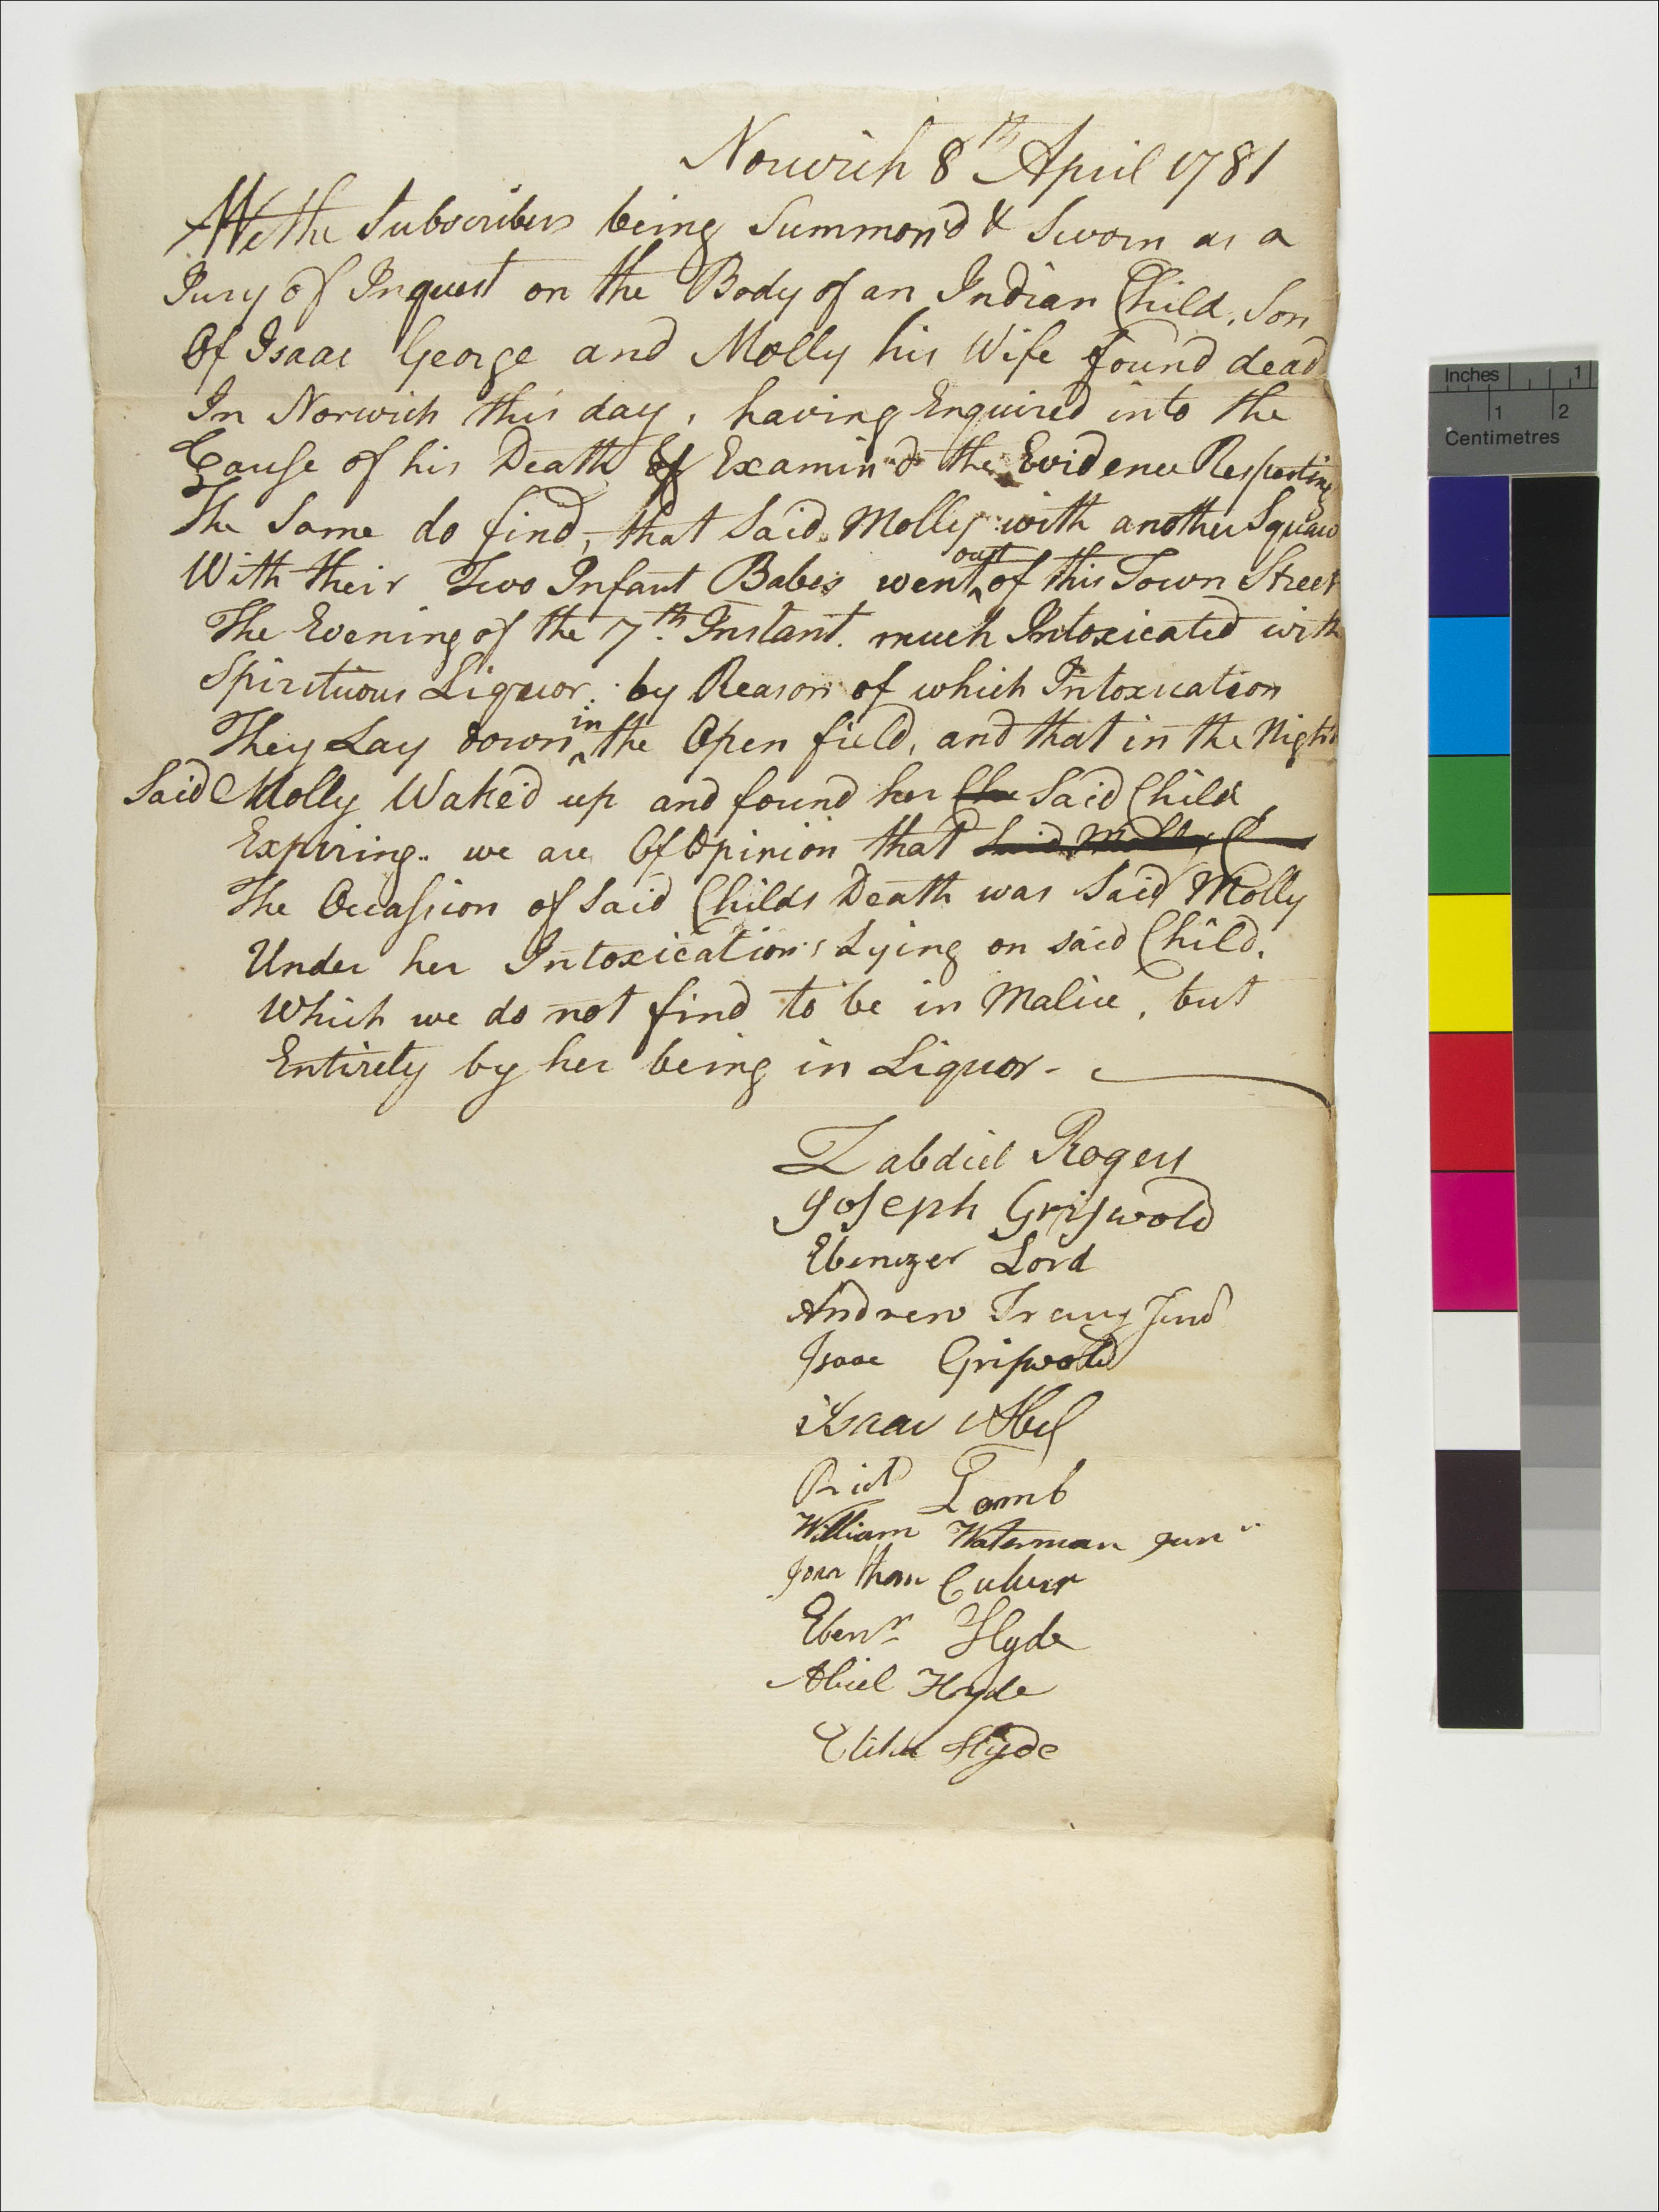 Norwich 8th April 1781
We the Subscribers being Summon'd & Sworn as a
Jury of Inquest on the Body of an Indian Child, Son
Of Isaac George and Molly his Wife found dead
In Norwich this day, having Enquired into the
Cause of his Death & Examin'd the Evidence Respecting
The Same do find, that Said Molly with another Squaw
With their Two Infant Babes went out of this Town Street
The Evening of the 7th Instant. much Intoxicated with
Spirituous Liquor. by Reason of which Intoxication
They Lay down in the Open field, and that in the Night
Said Molly Waked up and found her Said Child
Expiring.. we are Of Opinion that Said Molly
The Occasion of Said Childs Death was Said Molly
Under her Intoxication Lying on said Child.
Which we do not find to be in Malice, but
Entirely by her being in Liquor-
Zabdiel Rogers
Joseph Griswold
Ebenezer Lord
Andrew Tracy Junr
Isaac Griswold
Isaac Abel
Richd Lamb
William Waterman Junr
Jonathan Culver
Ebenr Hyde
Abiel Hyde
Elisha Hyde
Inches 1
1 2
Centimetres